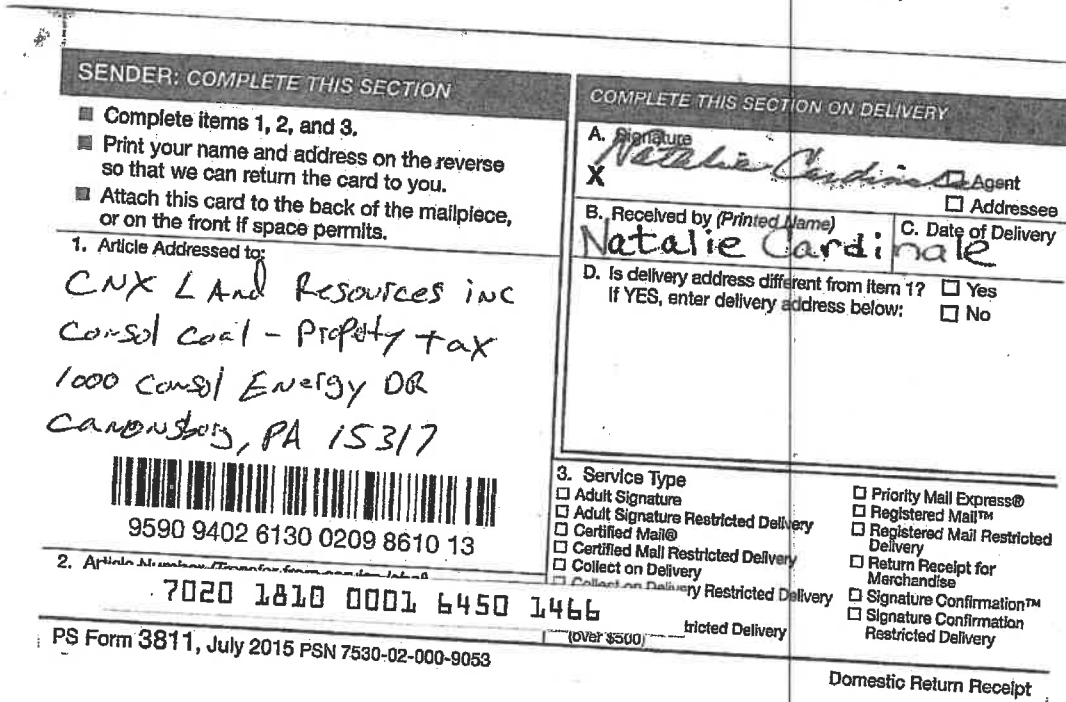 SENDER: COMPLETE THIS SECTION
■ Complete items 1, 2, and 3.
■ Print your name and address on the reverse
so that we can return the card to you.
■ Attach this card to the back of the mailpiece,
or on the front if space permits.
1. Article Addressed to:
CNX LAnd Resources inc
Consol coal - Property tax
1000 Consol Energy DR
Canonsburg, PA 15317
9590 9402 6130 0209 8610 13
2. Article Number (Transfer from service label)
7020 1810 0001 6450 1466
PS Form 3811, July 2015 PSN 7530-02-000-9053
COMPLETE THIS SECTION ON DELIVERY
A. Signature
X Natalie Cardinale
☐ Agent
☐ Addressee
B. Received by (Printed Name)
Natalie Cardinale
C. Date of Delivery
D. Is delivery address different from item 1? ☐ Yes
If YES, enter delivery address below: ☐ No
3. Service Type
☐ Adult Signature
☐ Adult Signature Restricted Delivery
☐ Certified Mail®
☐ Certified Mail Restricted Delivery
☐ Collect on Delivery
☐ Collect on Delivery Restricted Delivery
tricted Delivery
(over $500)
☐ Priority Mail Express®
☐ Registered Mail™
☐ Registered Mail Restricted
Delivery
☐ Return Receipt for
Merchandise
☐ Signature Confirmation™
☐ Signature Confirmation
Restricted Delivery
Domestic Return Receipt